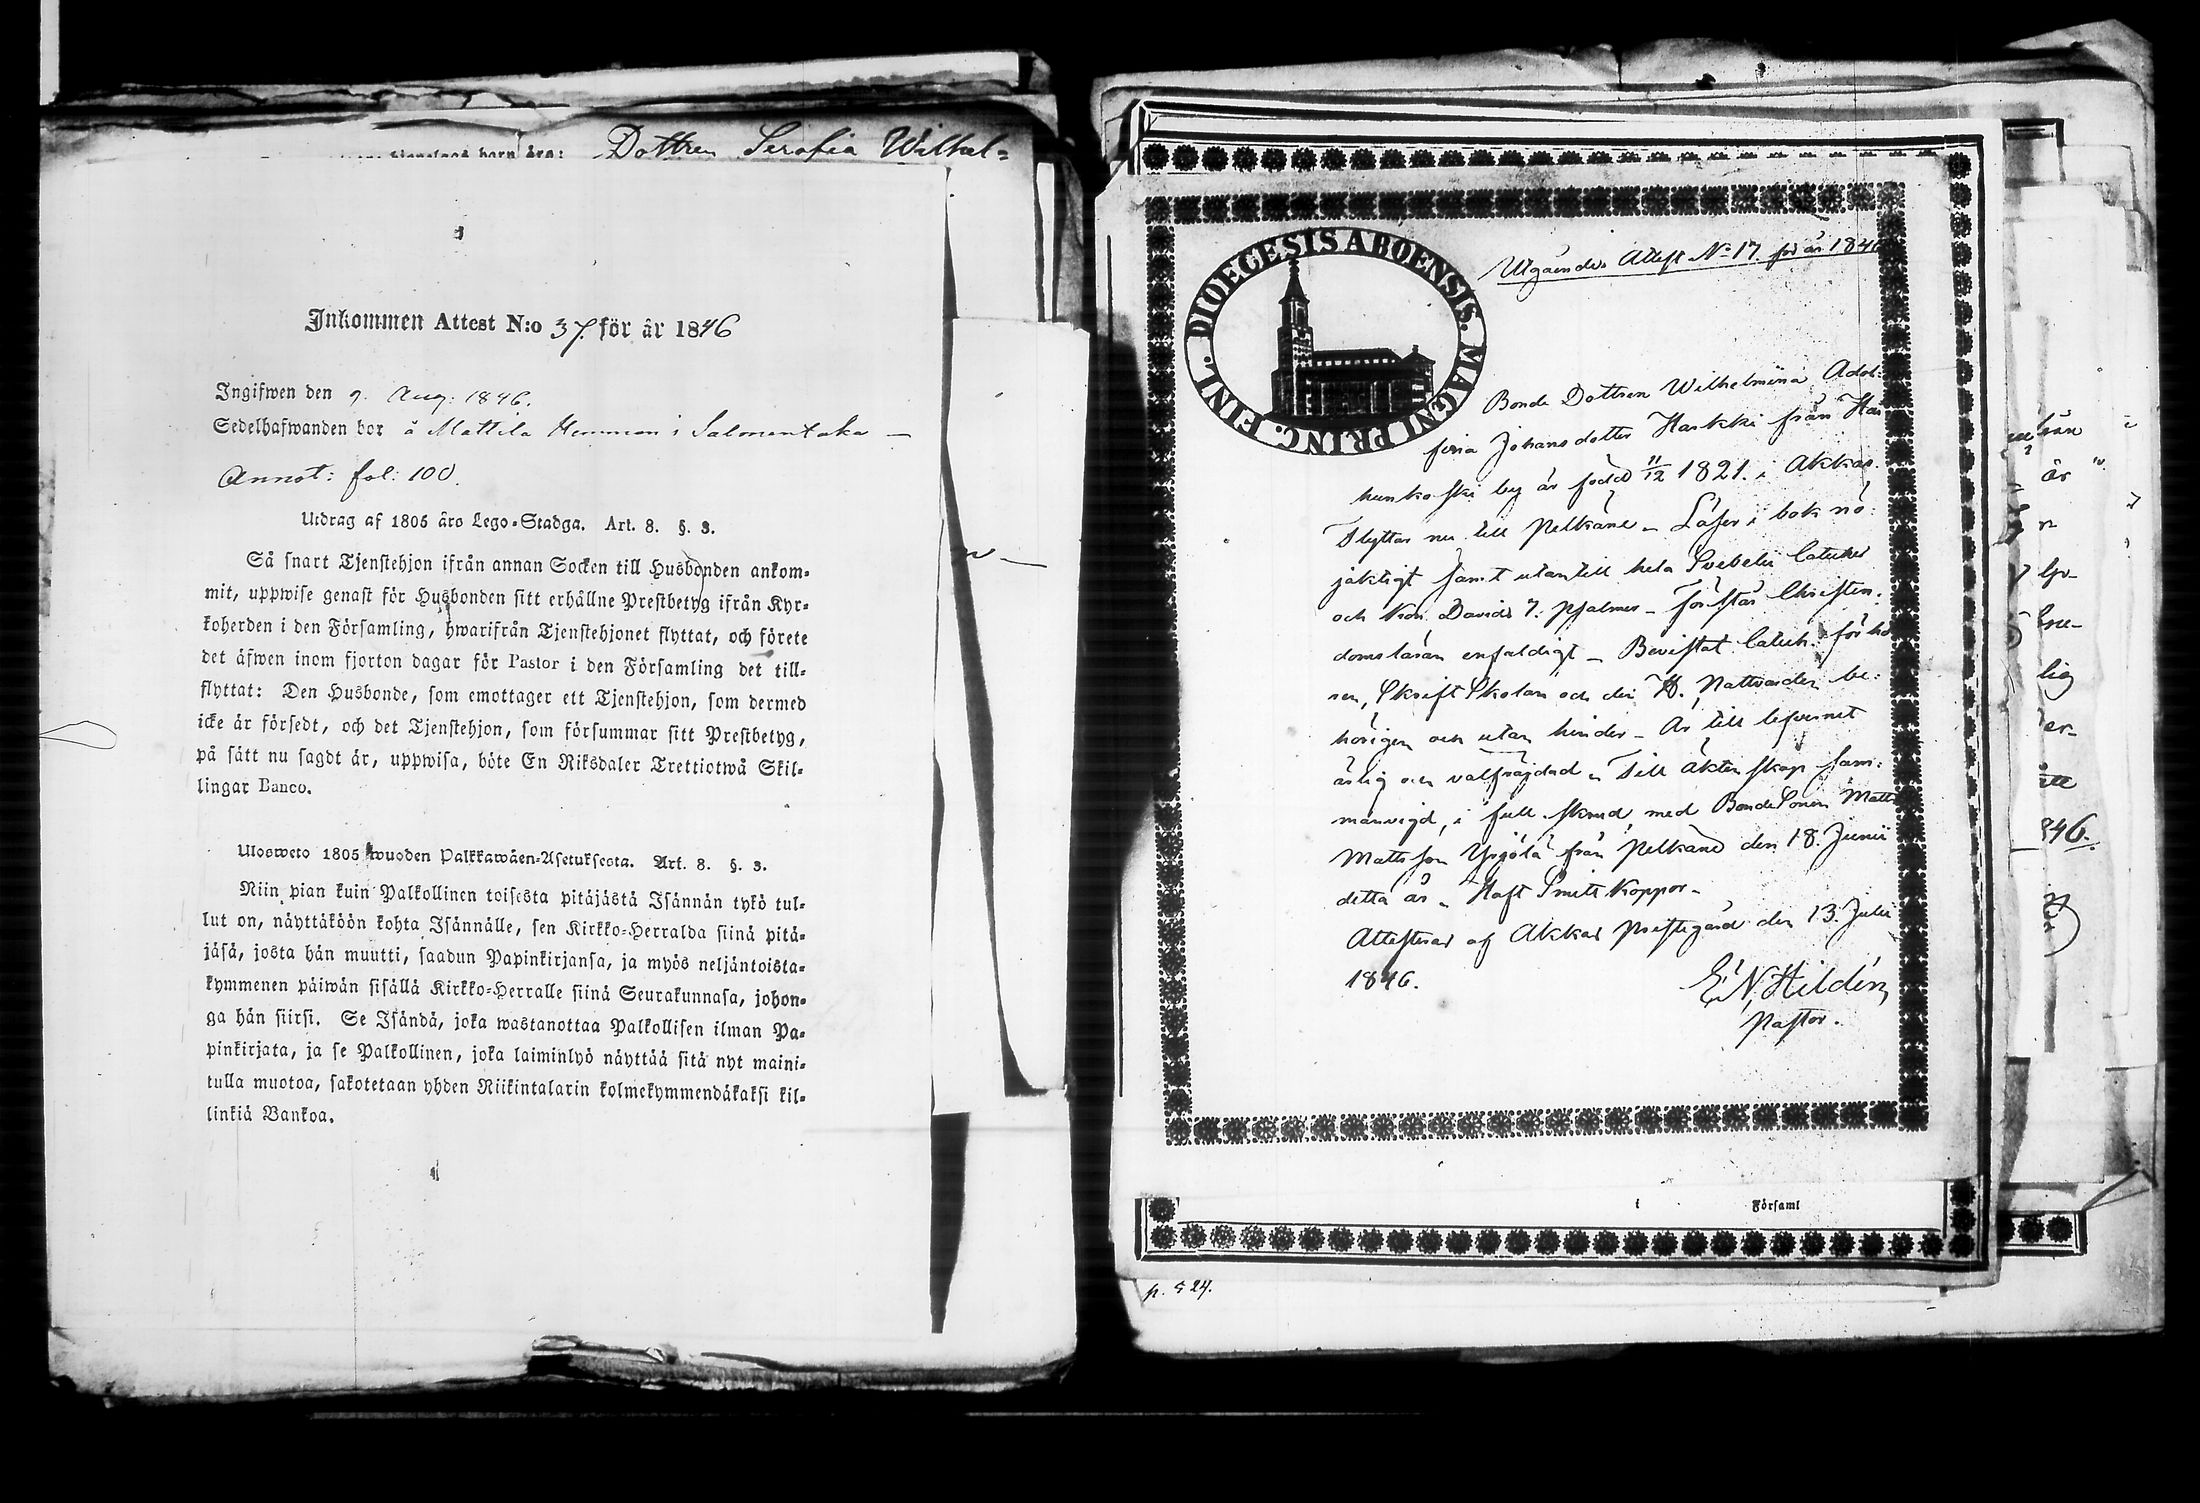 Dottren Serafia Wilhel=
Inkommen Attest N:o 37. för år 1846
Ingifwen den 9. Aug: 1846.
Sedelhafwanden bor å Mattila Hemman i Salmentaka —
Annot: fol: 100.
Utdrag af 1805 års Lego-Stadga. Art. 8. §. 3.
Så snart Tjenstehjon ifrån annan Socken till Husbonden ankom=
mit, uppwise genast för Husbonden sitt erhållne Prestbetyg ifrån Kyr=
koherden i den Församling, hwarifrån Tjenstehjonet flyttat, och förete
det äfwen inom fjorton dagar för Pastor i den Församling det till=
flyttat: Den Husbonde, som emottager ett Tjenstehjon, som dermed
icke är försedt, och det Tjenstehjon, som försummar sitt Prestbetyg,
på sätt nu sagdt är, uppwisa, böte En Riksdaler Trettiotwå Skil=
lingar Banco.
Ulosweto 1805 wuoden Palkkawäen-Asetuksesta. Art. 8. §. 3.
Niin pian kuin Palkollinen toisesta pitäjästä Isännän tykö tul=
lut on, näyttäköön kohta Isännälle, sen Kirkko-Herralda siinä pitä=
jäsä, josta hän muutti, saadun Papinkirjansa, ja myös neljäntoista=
kymmenen päiwän sisällä Kirkko-Herralle siinä Seurakunnasa, johon=
ga hän siirsi. Se Isändä, joka wastanottaa Palkollisen ilman Pa=
pinkirjata, ja se Palkollinen, joka laiminlyö näyttää sitä nyt maini=
tulla muotoa, sakotetaan yhden Riikintalarin kolmekymmendäkaksi kil=
linkiä Bankoa.
DIOECESIS ABOENSIS. MAGNI PRINC. FINL.
Utgående Attest N:o 17. för år 1846
Bonde Dottren Wilhelmina Adol=
fina Johansdotter Harkki från Har
hunkoski by är född 11/12 1821. i Akkas.
Flyttar nu till Pelkäne – Läser i bok nö=
jaktigt samt utantill hela Svebelii Cateches
och Kon. Davids 7. psalmer – Förstår Christen=
domsläran enfaldigt – Bevistat Catech. förhö
ren, Skrift Skolan och den H. Nattvarden be=
hörigen och utan hinder – Är till lefvernet
ärlig och välfräjdad – Till äktenskap sam=
manvigd, i full skrud, med BondeSonen Matts
Mattsson Yrjölä från Pelkäne den 18. Junii
detta år – Haft Smitt Koppor –
Attesterar af Akkas prestegård den 13. Julii
1846.
E. N. Hildén,
Pastor.
i Församl
p. 524.
är
lig
846.